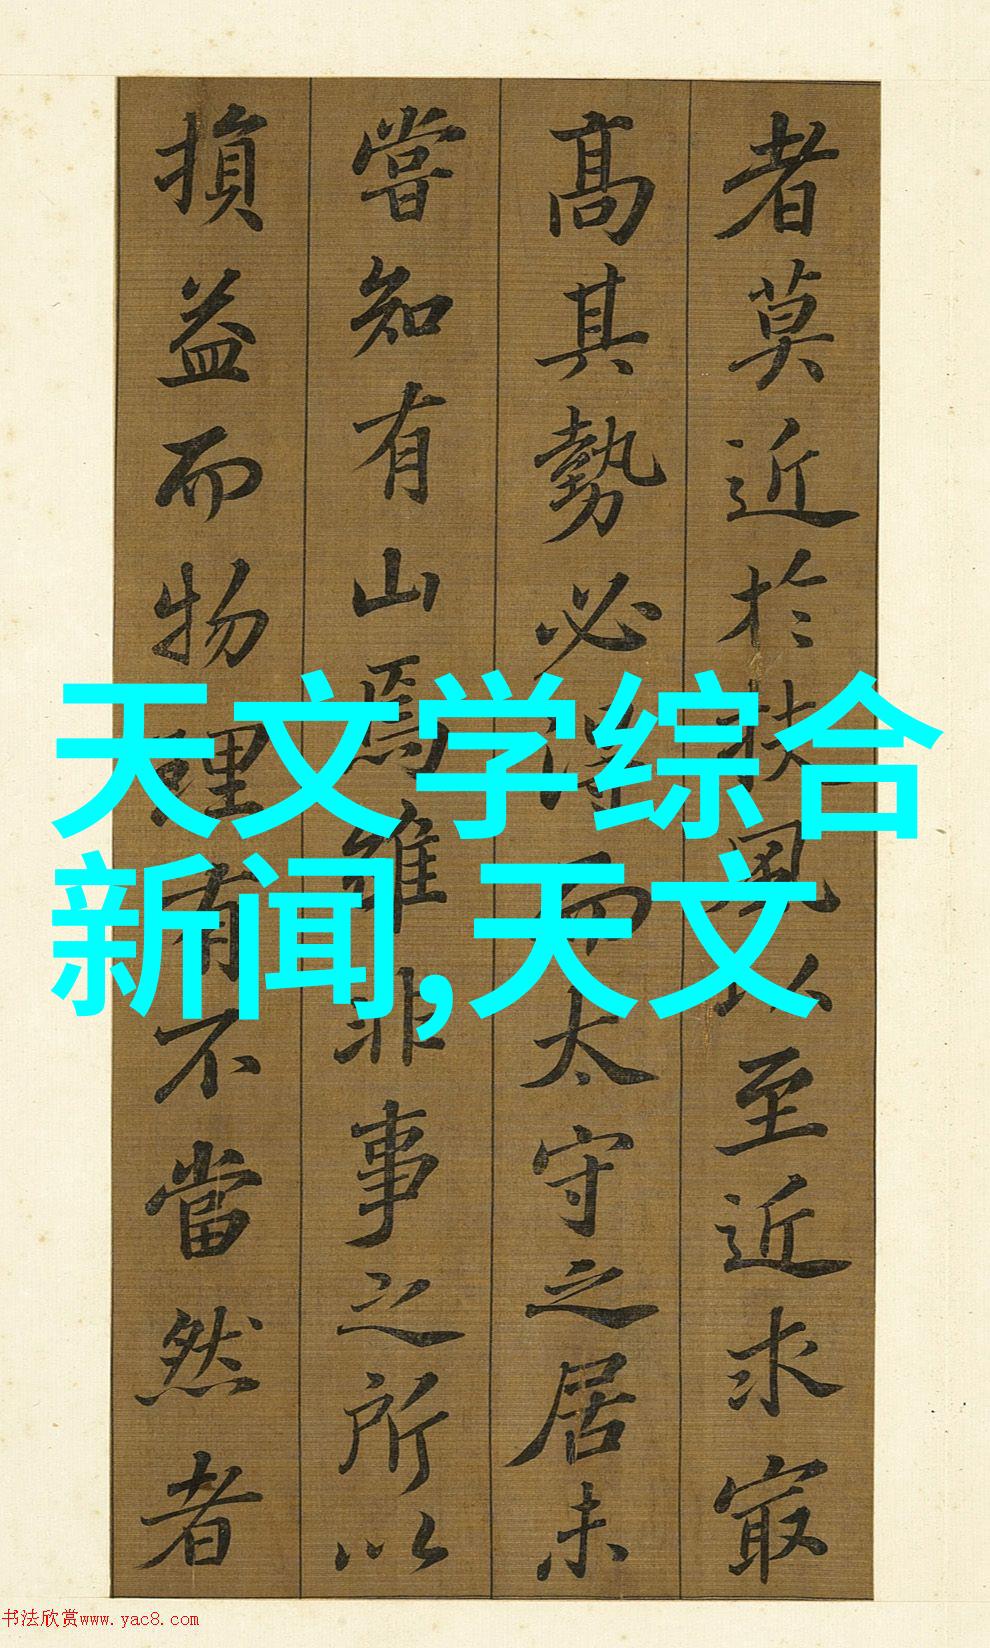 者莫近於扶風以至近求冣
髙其勢必得而太守之居未
嘗知有山焉雖非事之所以
損益而物理有不當然者
天文学综合
新闻,天文
书法欣赏www.yac8.com